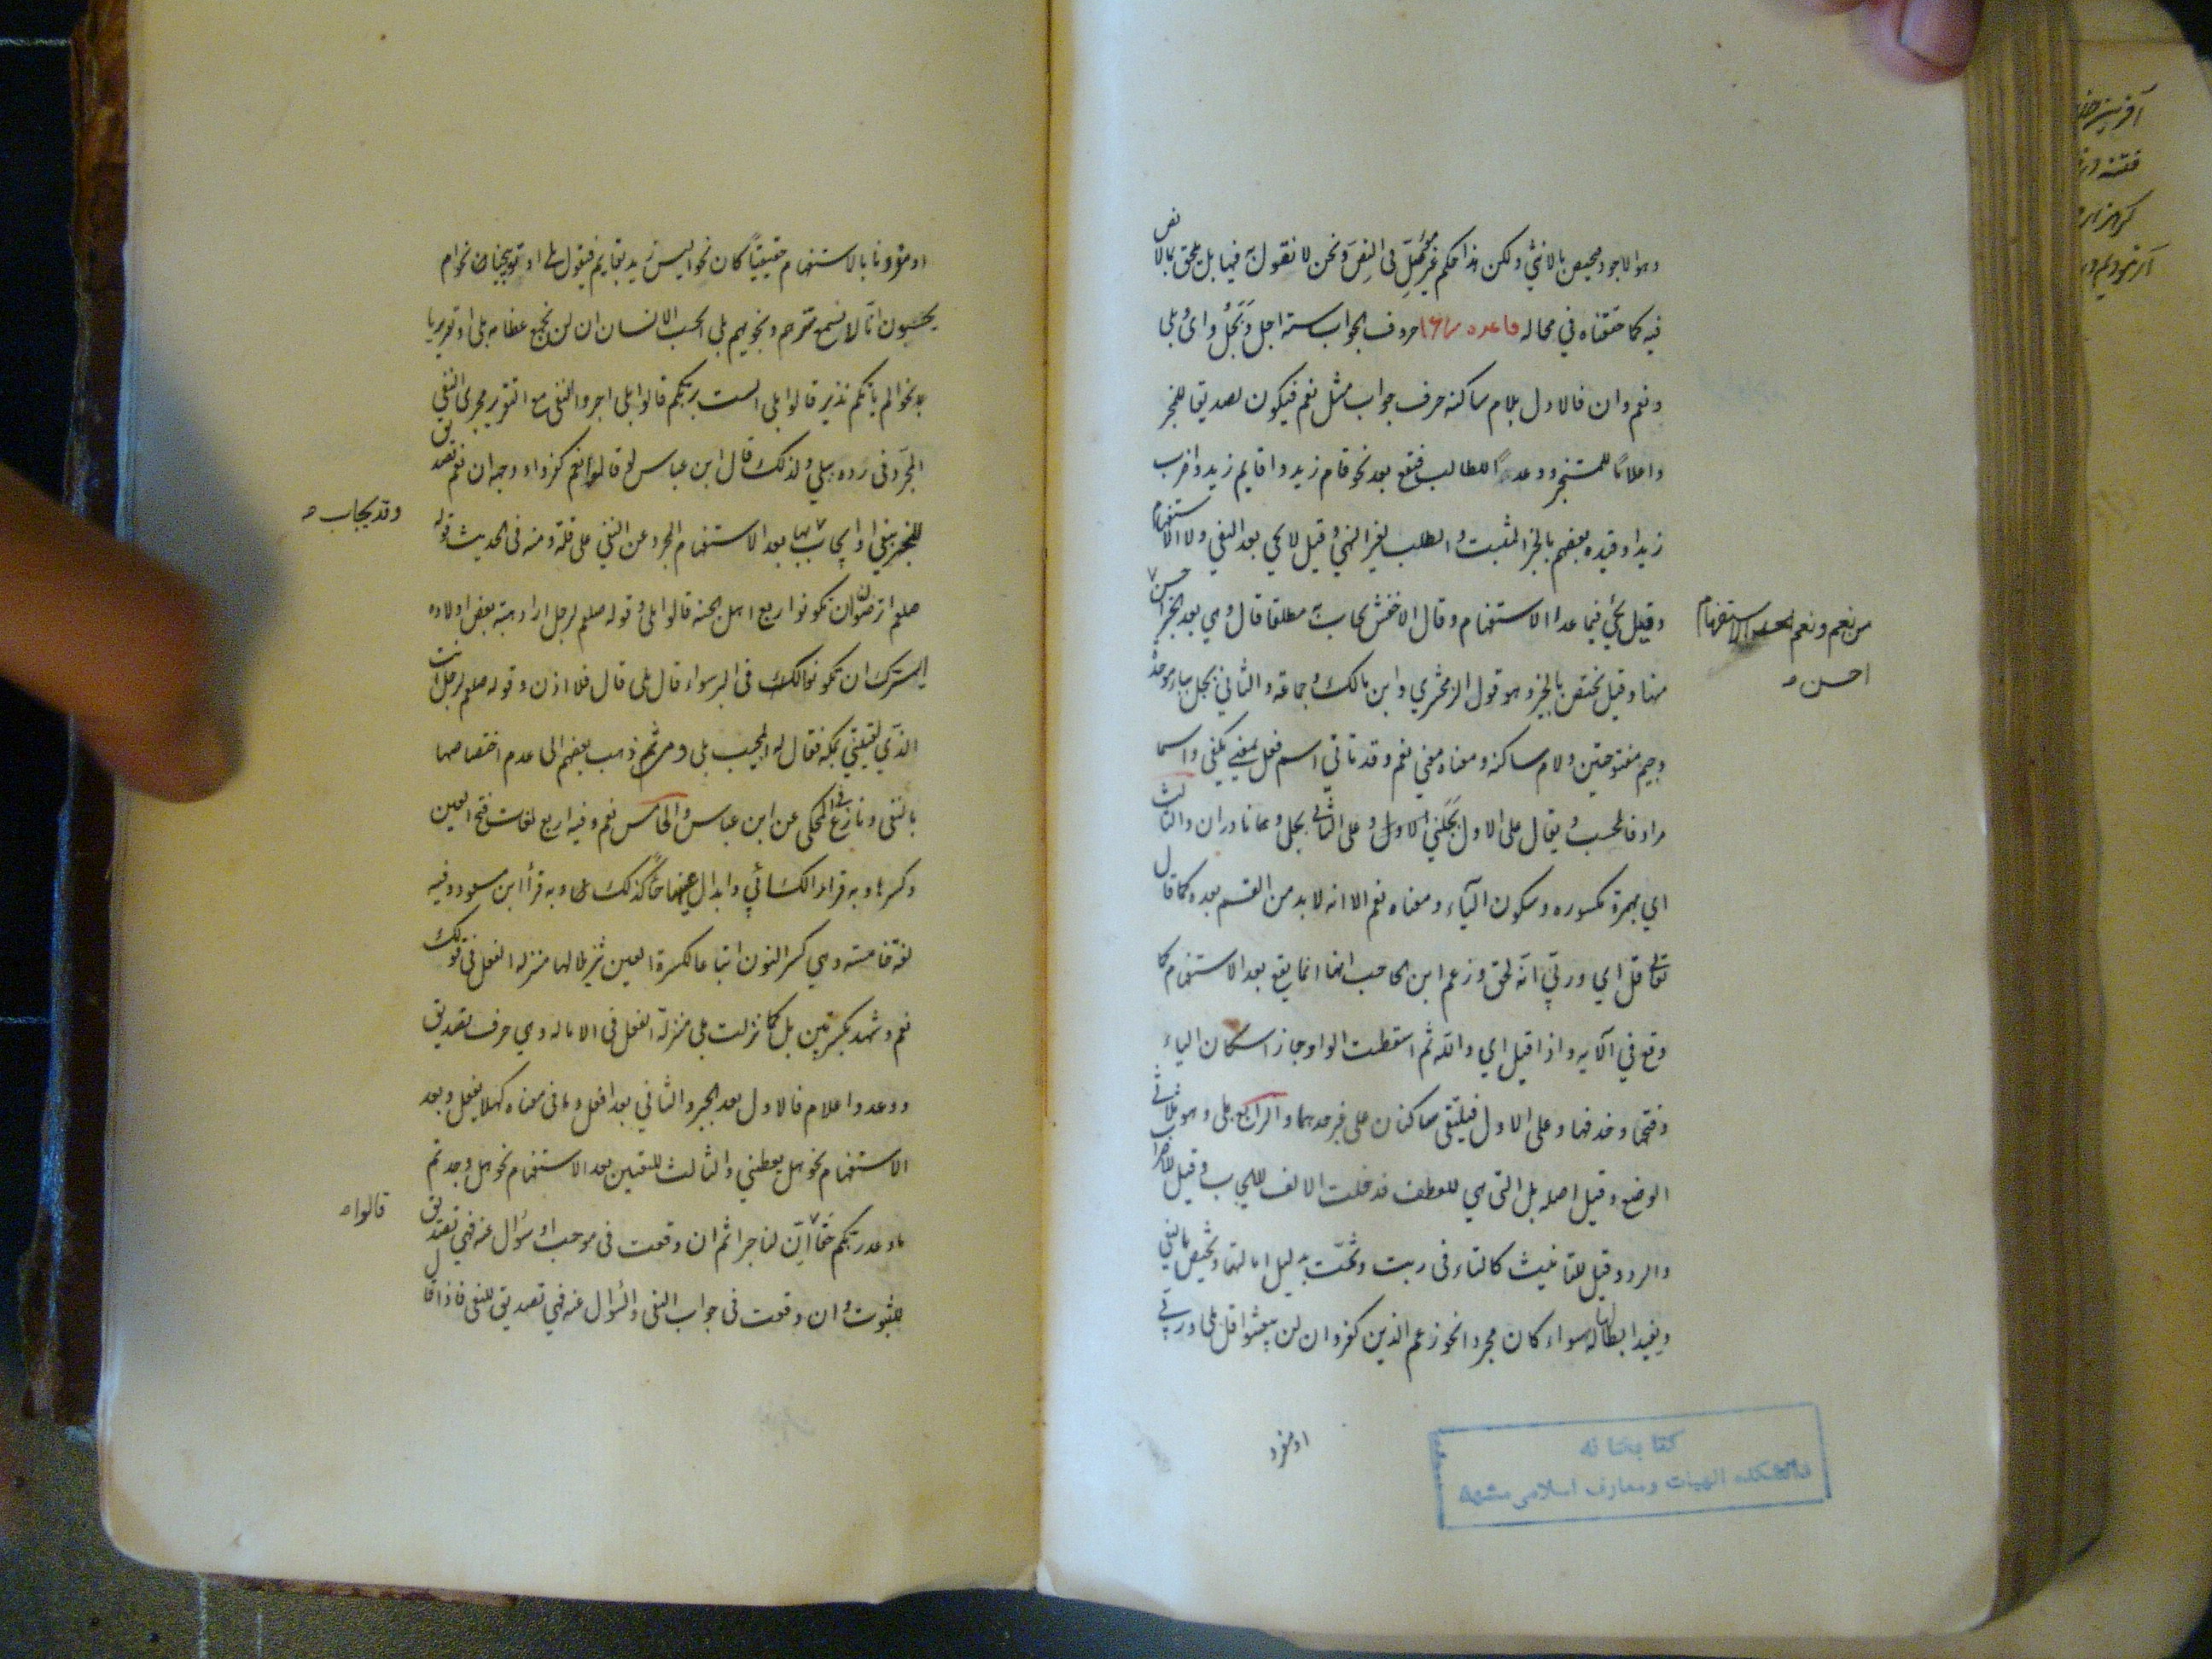 وهو الاجود محيص بالانثي ولكن هذا حكم غير في النفس ونحن لا نقول به فيها بل يلحق بالانص
فيه كما حققناه في محاله قاعده ١٦٢ حروف الجواب ستة اجل وبجل واي بلى
ونعم وان فالاول بلام ساكنه حرف جواب مثل نعم فيكون تصديقا للمخبر
واعلاما للمستخبر ووعدا للطالب فتقع بعد نحو قام زيد واقايم زيد واضرب
زيدا وقيده بعضهم بالخبر المثبت والطلب بغير النهي وقيل لا يجي بعد النفي ولا الاستفهام
وقيل يجئ فيما عدا الاستفهام وقال الاخفش يجاب به مطلقا قال وهي بعد الخبر احسن
من نعم ونعم بعد الاستفهام
احسن
منها وقيل تختص بالخبر وهو قول الزمخشري وابن مالك وجماعة والثاني بجل بباء موحدة
وجيم مفتوحتين ولام ساكنه ومعناه معنى نعم وقد تاتي اسم فعل بمعنى يكفي واسما
مرادفا لحسب ويقال على الاول بجلني وعلى الثاني بجلي وهما نادران والثالث
اي بهمزة مكسوره وسكون الياء ومعناه نعم الا انه لا بد من القسم بعده كما قال
تعالى قل اي وربي انه لحق وزعم ابن الحاجب انها انما يقع بعد الاستفهام كما
وقع في الآيه واذا قيل اي والله ثم اسقطت الواو جاز اسكان الياء
وفتحها وحذفها وعلى الاول فيلتقى ساكنان على غير حدهما والرابع بلى وهو ثلاثي
الوضع وقيل اصله بل التي هي للعطف فدخلت الالف للايجاب وقيل للاضراب
والرد وقيل للتانيث كالتاء في ربت وثمت بدليل امالتها وتختص بالنفي
ويفيد ابطاله سواء كان مجردا نحو زعم الذين كفروا ان لن يبعثوا قل بلى وربي
او مقرو
كتابخانه
دانشكده الهيات ومعارف اسلامى مشهد
او مقرونا بالاستفهام حقيقيا كان نحو اليس زيد بقايم فيقول بلى او توبيخيا نحو ام
يحسبون انا لا نسمع سرهم ونجويهم بلى ايحسب الانسان ان لن نجمع عظامه بلى او تقريريا
نحو الم ياتكم نذير قالوا بلى الست بربكم قالوا بلى اجروا النفي مع التقرير مجرى النفي
المجرد في رده ببلى ولذلك قال ابن عباس لو قالوا نعم كفروا ووجهه ان نعم تصديق
للمخبر بنفي او ايجاب بها بعد الاستفهام المجرد عن النفي على قلة ومنه في الحديث قوله
وقد يجاب
صلعم اترضون ان تكونوا ربع اهل الجنه قالوا بلى وقوله صلعم لرجل اراد هبة بعض اولاده
ايسرك ان يكونوا لك في البر سواء قال بلى قال فلا اذن وقوله صلعم لرجل انت
الذي لقيتني بمكه فقال له المجيب بلى ومن ثم ذهب بعضهم الى عدم اختصاصها
بالنفي ونازع في المحكى عن ابن عباس والخامس نعم وفيه اربع لغات فتح العين
وكسرها وبه قراء الكسائي وابدال عينها حاء كذلك وبه قرأ ابن مسعود وفيه
لغة خامسه وهي كسر النون اتباعا لكسرة العين تنزيلا لها منزله الفعل في قولك
نعم وشهد بكسرتين بل كما نزلت بلى منزلة الفعل في الاماله وهي حرف تصديق
ووعد واعلام فالاول بعد الخبر والثاني بعد افعل وما في معناه كهلا يفعل وبعد
الاستفهام نحو هل يعطيني والثالث للتعين بعد الاستفهام نحو هل وجدتم
ما وعد ربكم حقا ان لنا لاجرا ثم ان وقعت في موجب او سؤال عنه فهي تصديق
قالوا
للثبوت وان وقعت في جواب النفي والسؤال عنه فهي تصديق للنفي فاذا قال